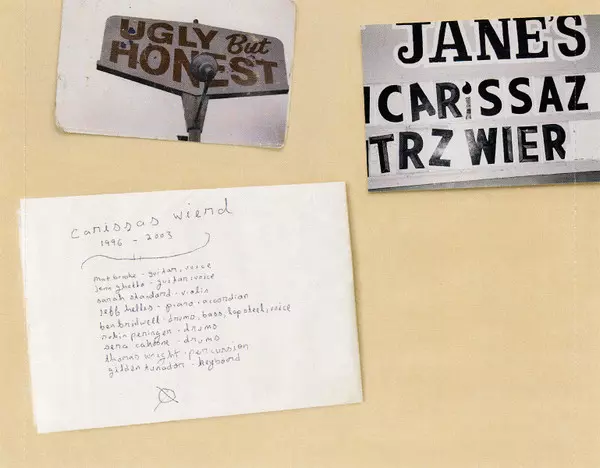 UGLY But
HONEST
JANE'S
CARiSSAZ
TRZ WIER
carissas wierd
1996 - 2003
mat brooke - guitar, voice
jenn ghetto - guitar, voice
sarah standard - violin
jeff hellis - piano, accordian
ben bridwell - drums, bass, lap steel, voice
robin peringer - drums
sera cahoone - drums
thomas wright - percussion
gilden tunador - keyboard